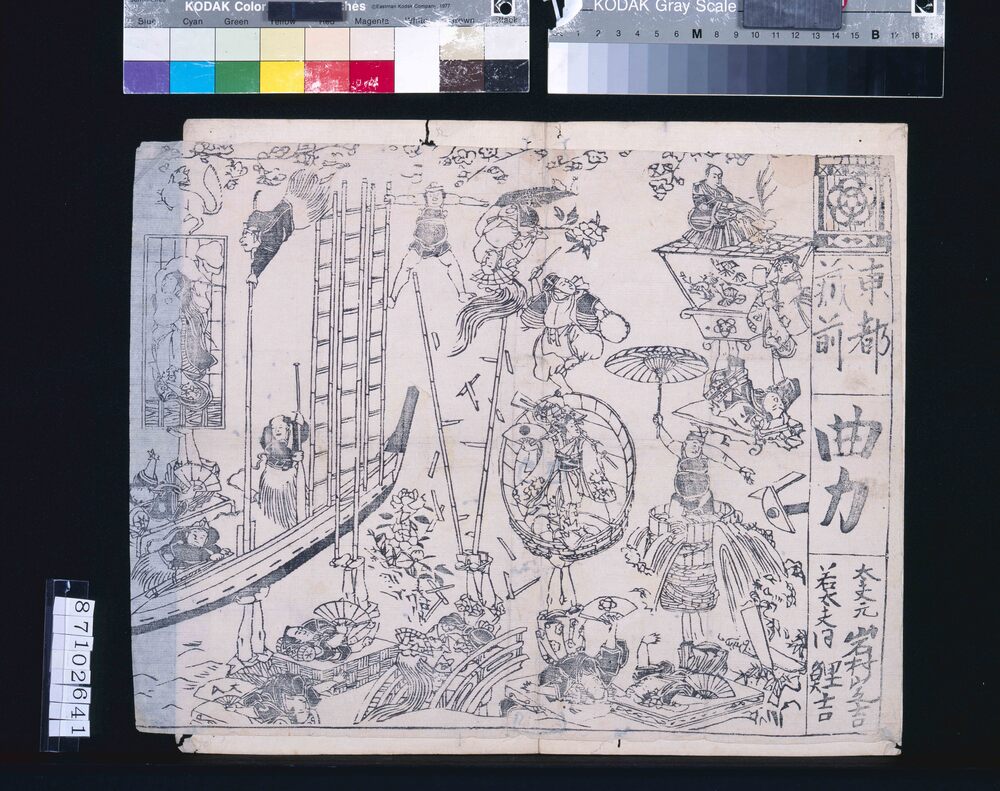 KODAK Color
©Eastman Kodak Company, 1977
Blue Cyan Green Yellow Red Magenta White Brown Black
KODAK Gray Scale
1 2 3 4 5 6 M 8 9 10 11 12 13 14 15 B 17 18
東都
蔵前
曲力
太夫元
若太夫同 鯉吉
87102641